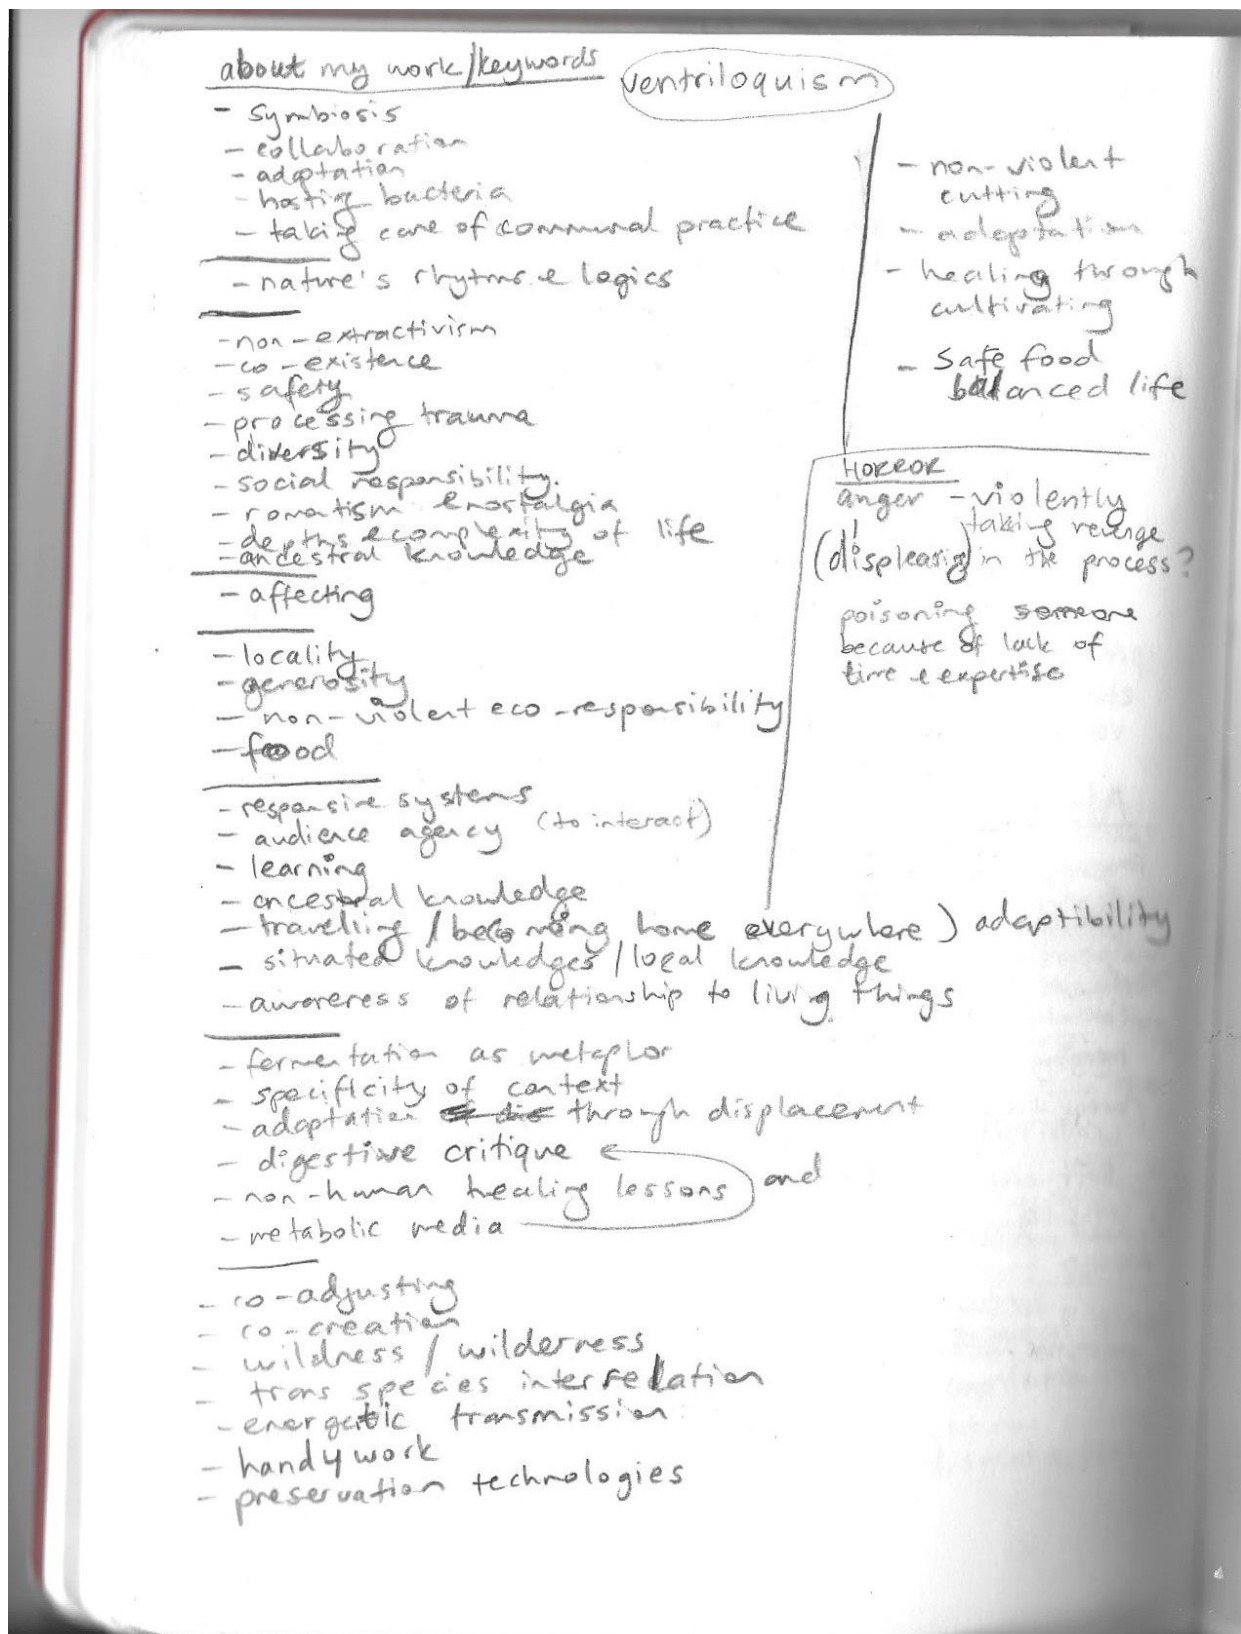 about my work/keywords
ventriloquism
- symbiosis
- collaboration
- adaptation
- hosting bacteria
- taking care of communal practice
- nature's rhytms & logics
- non-extractivism
- co-existence
- safety
- processing trauma
- diversity
- social responsibility.
- romatism & nostalgia
- depths & complexity of life
- ancestral knowledge
- affecting
- locality
- generosity
- non-violent eco-responsibility
- food
- responsive systems
- audience agency (to interact)
- learning
- ancestral knowledge
- travelling / becoming home everywhere) adaptibility
- situated knowledges / local knowledge
- awareness of relationship to living things
- fermentation as metaphor
- specificity of context
- adaptation through displacement
- digestive critique
- non-human healing lessons) and
- metabolic media
- co-adjusting
- co-creation
- wildness / wilderness
- trans species interrelation
- energetic transmission
- handywork
- preservation technologies
- non-violent
cutting
- adaptation
- healing through
cultivating
- Safe food
balanced life
HORROR
anger - violently
taking revenge
(displeasing) in the process?
poisoning someone
because of lack of
time & expertise